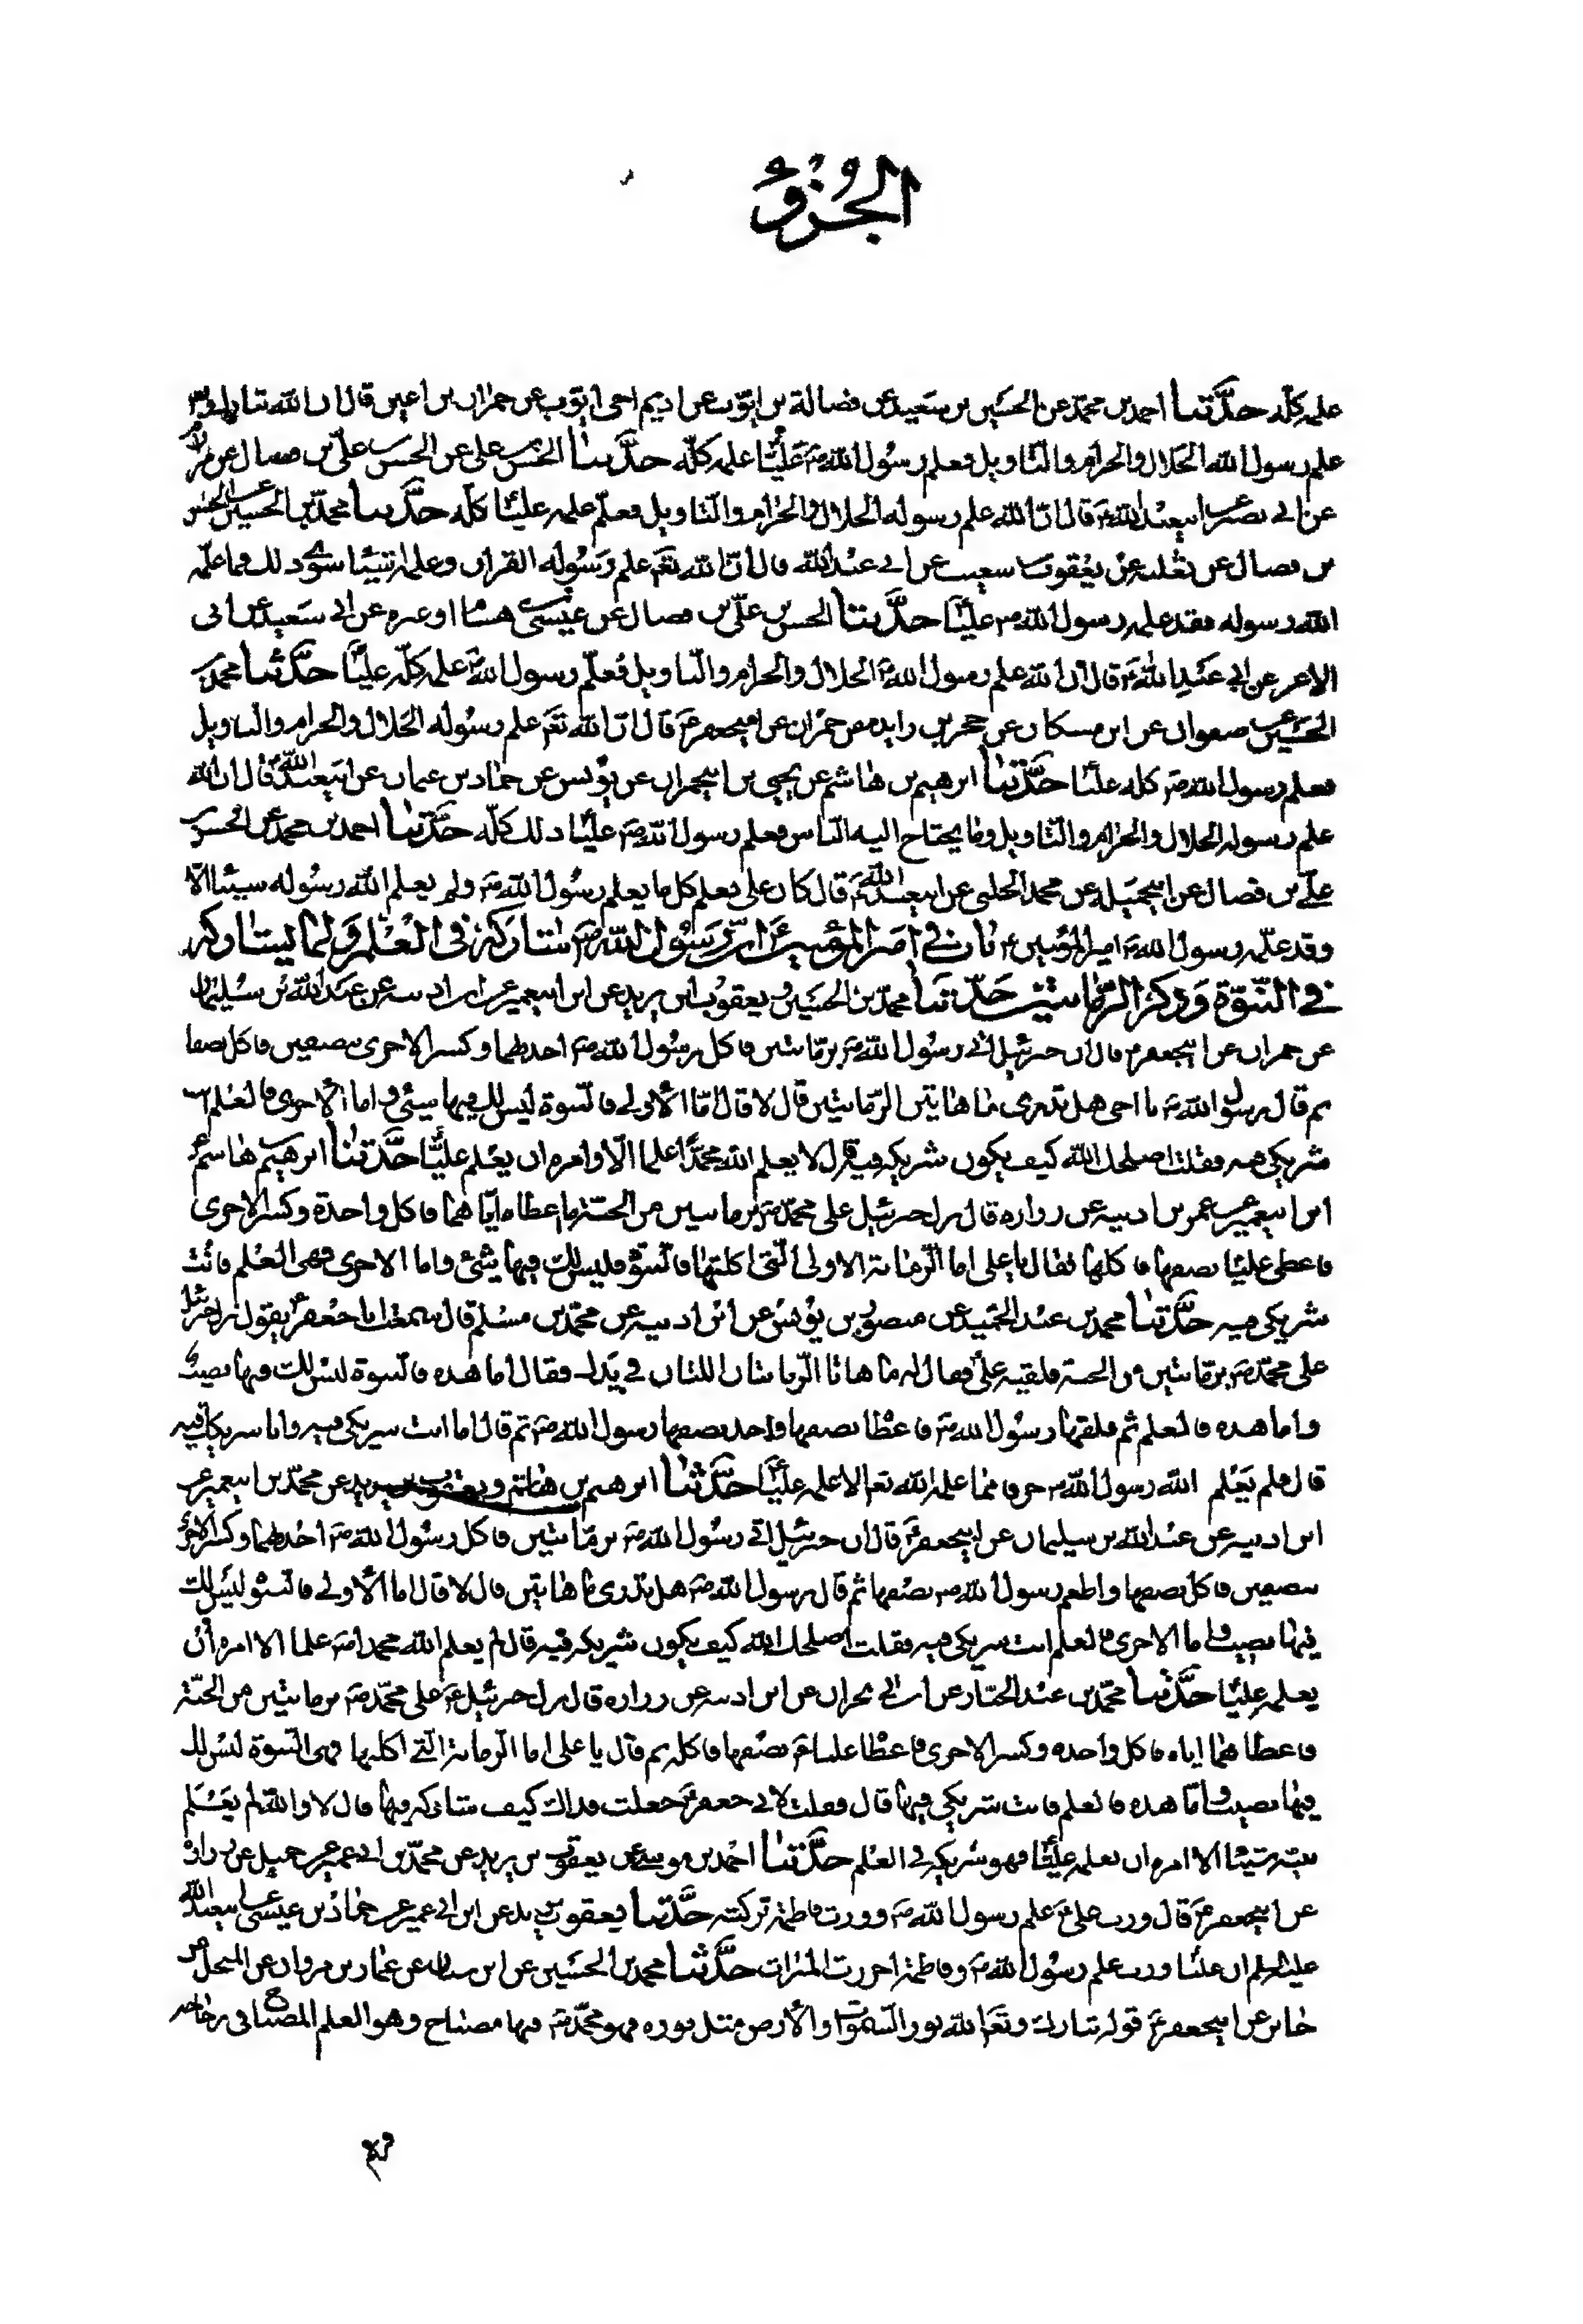 الجزو
علمه كله حدثنا احمد بن محمد عن الحسين بن سعيد عن فضالة بن ايوب عن اديم اخى ايوب عن حمران بن اعين قال ان الله تبارك و
علم رسول الله الحلال والحرام والتاويل فعلم رسول الله ص عليا علمه كله حدثنا الحسن بن على عن الحسن بن على بن فضال عن
عن ابى بصير عن ابيعبد الله ع قال ان الله علم رسوله الحلال والحرام والتاويل فعلم علمه عليا كله حدثنا محمد بن الحسين عن الحسن
بن فضال عن ثعلبه عن يعقوب بن شعيب عن ابى عبد الله قال ان الله تعم علم رسوله القران وعلمه شيئا سوى ذلك فما علم
الله رسوله فقد علمه رسول الله ص عليا حدثنا الحسن بن على بن فضال عن عيسى بن هشام او غيره عن ابى سعيد عن ابى
الاعر عن ابى عبد الله ع قال ان الله علم رسول الله ص الحلال والحرام والتاويل فعلم رسول الله ص علمه كله عليا حدثنا محمد بن
الحسين عن صفوان عن ابن مسكان عن حجر بن زايده عن حمران عن ابيجعفر ع قال ان الله تعم علم رسوله الحلال والحرام والتاويل
فعلم رسول الله ص كله عليا حدثنا ابرهيم بن هاشم عن يحيى بن ابيعمران عن يونس عن حماد بن عثمان عن ابيعبد الله ع قال ان الله
علم رسوله الحلال والحرام والتاويل وما يحتاح اليه الناس فعلم رسول الله ص عليا ذلك كله حدثنا احمد بن محمد عن الحسن بن
على بن فضال عن ابيجميله عن محمد الحلبى عن ابيعبد الله ع قال كان على يعلم كل ما يعلم رسول الله ص ولم يعلم الله رسوله شيئا الا
وقد علمه رسول الله ص امير المؤمنين ع باب فى امير المؤمنين ع ان رسول الله ص شاركه فى العلم ولم يشاركه
فى النبوة وذكر الرمانتين حدثنا محمد بن الحسين و يعقوب ابن يزيد عن ابن ابيعمير عن ابن اذينه عن عبد الله بن سليمان
عن حمران عن ابيجعفر ع قال ان جبرئيل اتى رسول الله ص برمانتين فاكل رسول الله ص احدهما وكسر الاخرى بنصفين فاكل نصفا
ثم قال رسول الله ص يا اخى هل تدرى ما هاتين الرمانتين قال لا قال اما الاولى فالنبوة ليس لك فيها شئ واما الاخرى فالعلم انت
شريكى فيه فقلت اصلحك الله كيف يكون شريكه فيه قال لا يعلم الله محمدا علما الا وامره ان يعلم عليا حدثنا ابرهيم بن هاشم عن
ابن ابيعمير عن عمر بن اذينه عن زراره قال نزل جبرئيل على محمد ص برمانتين من الجنة فاعطاه اياهما فاكل واحدة وكسر الاخرى
فاعطى عليا نصفها فاكلها فقال يا على اما الرمانة الاولى التى اكلتها فالنبوة فليس لك فيها شئ واما الاخرى فهى العلم فانت
شريكى فيه حدثنا محمد بن عبد الحميد عن منصور بن يونس عن ابن اذينه عن محمد بن مسلم قال سمعت ابا جعفر ع يقول نزل جبرئيل
على محمد ص برمانتين من الجنة فلقيه على فقال له ما هاتا الرمانتان اللتان فى يدك فقال اما هذه فالنبوة ليس لك فيها نصيب
واما هذه فالعلم ثم فلقها رسول الله ص فاعطاه نصفها واخذ نصفها رسول الله ص ثم قال اما انت شريكى فيه وانا شريكك فيه
قال فلم يعلم الله رسول الله ص حرفا مما علمه الله تعم الا علمه عليا حدثنا ابرهيم بن هاشم و يعقوب بن يزيد عن محمد بن ابيعمير عن
ابن اذينه عن عبد الله بن سليمان عن ابيجعفر ع قال ان جبرئيل اتى رسول الله ص برمانتين فاكل رسول الله ص احدهما وكسر الاخرى
بنصفين فاكل نصفها واطعم رسول الله ص نصفها ثم قال رسول الله ص هل تدرى ما هاتين قال لا قال اما الاولى فالنبوة ليس لك
فيها نصيب واما الاخرى فالعلم انت شريكى فيه فقلت اصلحك الله كيف يكون شريكه فيه قال لم يعلم الله محمدا ص علما الا امره ان
يعلمه عليا حدثنا محمد بن عبد الجبار عن ابن ابى نجران عن ابن اذينه عن زراره قال نزل جبرئيل ع على محمد ص برمانتين من الجنة
فاعطاهما اياه فاكل واحده وكسر الاخرى فاعطا عليا ع نصفها فاكله ثم قال يا على اما الرمانة التى اكلتها فهى النبوة ليس لك
فيها نصيب واما هذه فالعلم فانت شريكى فيها قال فقلت لابى جعفر ع جعلت فداك كيف شاركه فيها قال لا والله لم يعلم
نبيه شيئا الا امره ان يعلمه عليا فهو شريكه فى العلم حدثنا احمد بن موسى عن يعقوب بن يزيد عن محمد بن ابى عمير عن جميل عن زراره
عن ابيجعفر ع قال ورث على ع علم رسول الله ص وورث فاطمة تركته حدثنا يعقوب بن يزيد عن ابن ابى عمير عن حماد بن عيسى عن ابيعبد الله
عليه السلم ان عليا ورث علم رسول الله ص وفاطمة احرزت الميراث حدثنا محمد بن الحسين عن ابن سنان عن عمار بن مروان عن المنخل عن
جابر عن ابيجعفر ع قوله تبارك وتعم الله نور السموات والارض مثل نوره فهو محمد ص فيها مصباح وهو العلم المصباح فى زجاجه